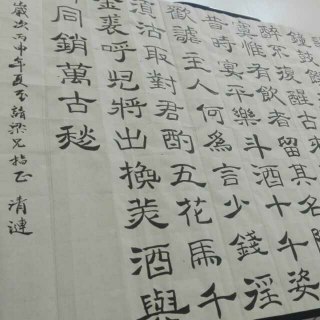 鐘鼓饌
醉不復醒古來
寞惟有飲者留其名陳
昔時宴平樂斗酒十千姿
歡謔主人何為言少錢徑
須沽取對君酌五花馬千
金裘呼兒將出換美酒與
同銷萬古愁
歲次丙申年夏至請梁兄指正 清漣